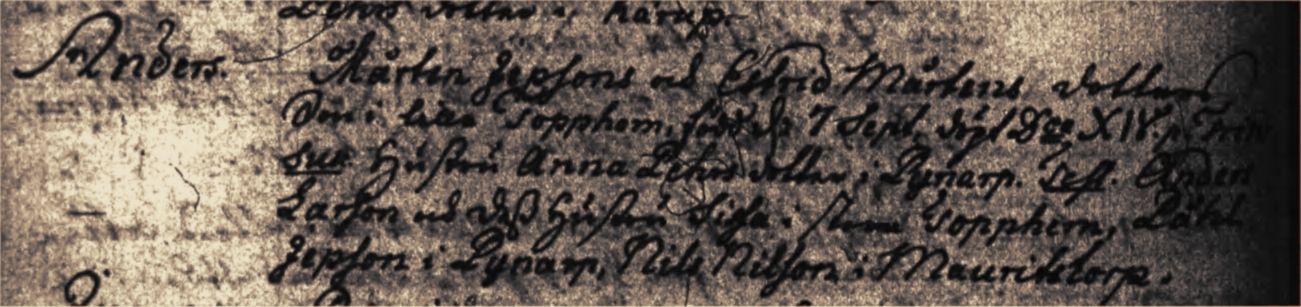 Pehrs dotter i Kårup.
Anders. Mårten Jepsons och Estrid Mårtens dotters
Son i lilla Topphem, född d. 7 Sept. döpt XIV. p. Trin
sus. Hustru Anna Pehrs dotter i Rynarp. Test. Anders
Larson och deß Hustru Sissa i stora Topphem,
Jepson i Rynarp, Nils Nilson i Mauridstorp.